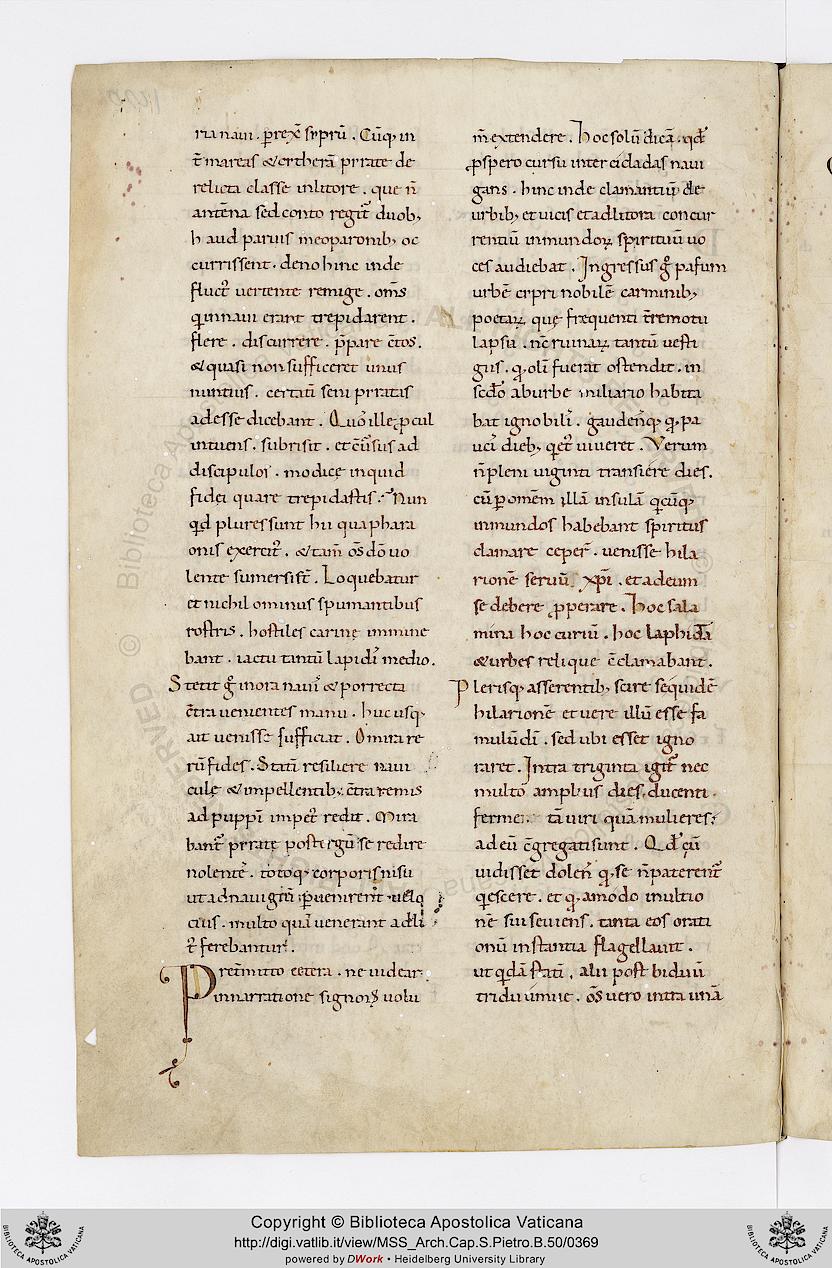 ria navi . p̄rexͥ cyprū . Cūq; in
t̄ mareas & cytherā pyratę de
relicta classe in litore . que n̄
antēna sed conto regit᷑ duob;
haud parvis meoparonib; oc
currissent . deno hinc inde
fluct᷑ vertente remige . om̄s
q̇ in navi erant trepidarent .
flere . discurrere . p̄pare c̄tos .
& quasi non sufficeret unus
nuntius . certatī seni pyratas
adesse dicebant . Quo ille ꝓcul
intuens . subrisit . et cūsus ad
discipulos . modicę inquid
fidei quare trepidastis ? Nun
qd̄ plures sunt hii quā phara
onis exercit᷑ . & tam̄ om̄s dō vo
lente sumersi st̄ . Loquebatur
et nichil ominus spumantibus
rostris . hostiles carinę immine
bant . iactu tantū lapidis medio .
Stetit g̊ in ora navis & porrecta
c̄tra venientes manu . huc usq;
ait venisse sufficiat . O mira re
rū fides . Statī resiliere navi
culę & impellentib; c̄tra remis
ad puppī impet᷑ redit . Mira
bant᷑ pyratę post tergū se redire
nolentes . totoq; corporis nisu
ut ad navigiū pervenirent . veloq
cius . multo quā venerant ad li
t᷑ ferebantur .
Pretermitto cetera . ne videar
in narratione signoꝝ volu
m̄ extendere . Hoc solū dicā . qd̄
ꝓspero cursu inter cicladas navi
gans . hinc inde clamantiū de
urbib; et vicis et ad litora concur
rentiū inmundoꝝ spirituū vo
ces audiebat . Ingressus g̊ pafum
urbē cypri nobilē carminib;
poetaꝝ quę frequenti t̄remotu
lapsu . n̄c ruinaꝝ tantū vesti
giis . q; olī fuerat ostendit . in
sc̄do ab urbe miliario habita
bat ignobilis . gaudensq; q; pa
ucis dieb; q̇et᷑ viveret . Verum
n̄ pleni viginti transiere dies .
cū p omēm illā insulā q̇cūq;
inmundos habebant spiritus
clamare ceper̄ . venisse hila
rionē servū xp̄i . et ad eum
se debere ꝓperare . Hoc sala
mina hoc curiū . hoc laphidā
& urbes relique c̄clamabant .
Plerisq; asserentib; scire se quidē
hilarionē et vere illū esse fa
mulū dī . sed ubi esset igno
raret . Intra triginta igit᷑ nec
multo amplius dies . ducenti
ferme . tā viri quā mulieres ;
ad eū c̄gregati sunt . Qd̄ cū
vidisset dolens q; se n̄ paterent᷑
q̇escere . et q; amodo in ultio
nē sui seviens . tanta eos orati
onū instantia flagellavit .
ut q̇dā statī . alii post biduū
triduūmve . om̄s vero intra unā
Copyright © Biblioteca Apostolica Vaticana
http://digi.vatlib.it/view/MSS_Arch.Cap.S.Pietro.B.50/0369
powered by DWork • Heidelberg University Library